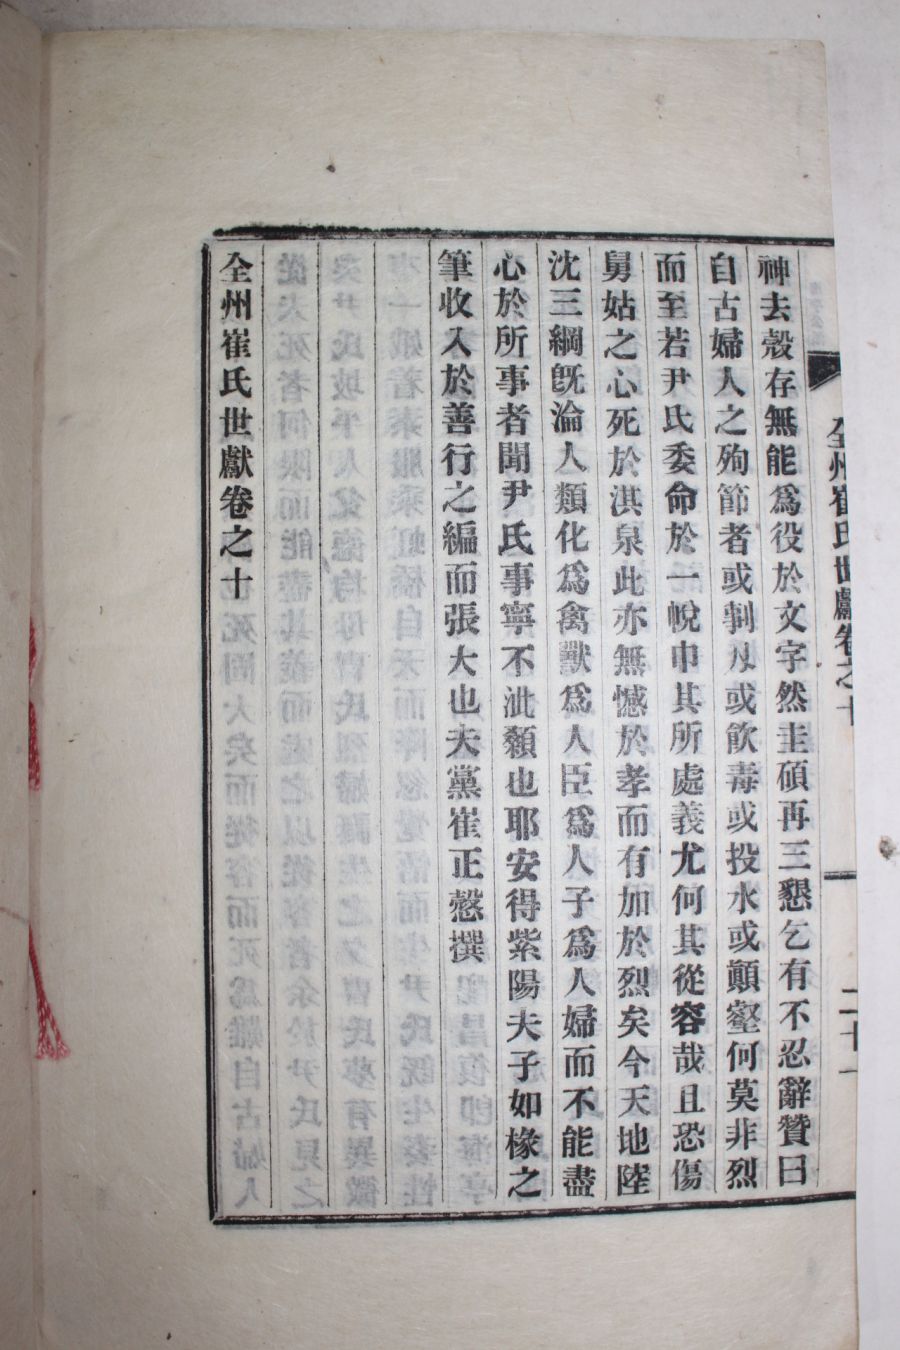 全州崔氏世獻卷之十
二十一
神去殼存無能爲役於文字然圭碩再三懇乞有不忍辭贊曰
自古婦人之殉節者或剚刃或飮毒或投水或顚壑何莫非烈
而至若尹氏委命於一帨巾其所處義尤何其從容哉且恐傷
舅姑之心死於洪泉此亦無憾於孝而有加於烈矣今天地陸
沈三綱旣淪人類化爲禽獸爲人臣爲人子爲人婦而不能盡
心於所事者聞尹氏事寧不泚顙也耶安得紫陽夫子如椽之
筆收入於善行之編而張大也夫黨崔正愻撰
全州崔氏世獻卷之十